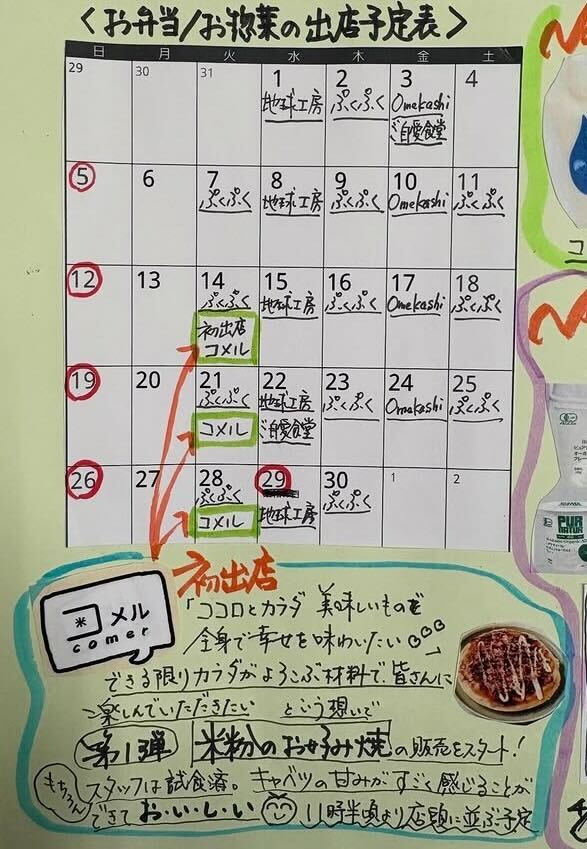 ＜お弁当/お惣菜の出店予定表＞
日 月 火 水 木 金 土
29 30 31 1 2 3 4
地球工房 ぷくぷく Omekashi
ご自愛食堂
5 6 7 8 9 10 11
ぷくぷく 地球工房 ぷくぷく Omekashi ぷくぷく
12 13 14 15 16 17 18
ぷくぷく 地球工房 ぷくぷく Omekashi ぷくぷく
初出店
コメル
19 20 21 22 23 24 25
ぷくぷく 地球工房 ぷくぷく Omekashi ぷくぷく
コメル ご自愛食堂
26 27 28 29 30 1 2
ぷくぷく 地球工房 ぷくぷく
コメル
初出店
コメル
comer
「ココロとカラダ 美味しいものを
全身で幸せを味わいたい」
できる限りカラダがよろこぶ材料で、皆さんに
楽しんでいただきたい という想いで
第1弾 米粉のお好み焼の販売をスタート!
もちろんスタッフは試食済。キャベツの甘みがすごく感じることが
できて お・い・し・い 11時半頃より店頭に並ぶ予定
PUR
NATUR